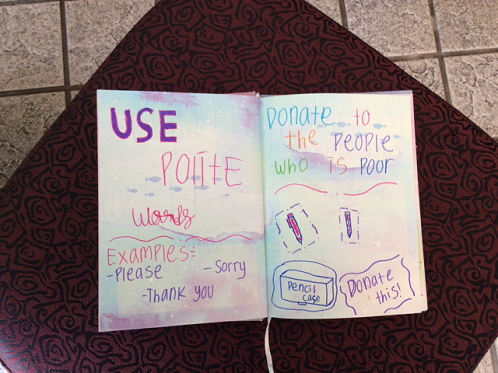 USE
POLITE
Words
Examples:
-Please
-Sorry
-Thank you
Donate to
the PEOPLE
who is Poor
Pencil
case
Donate
this!